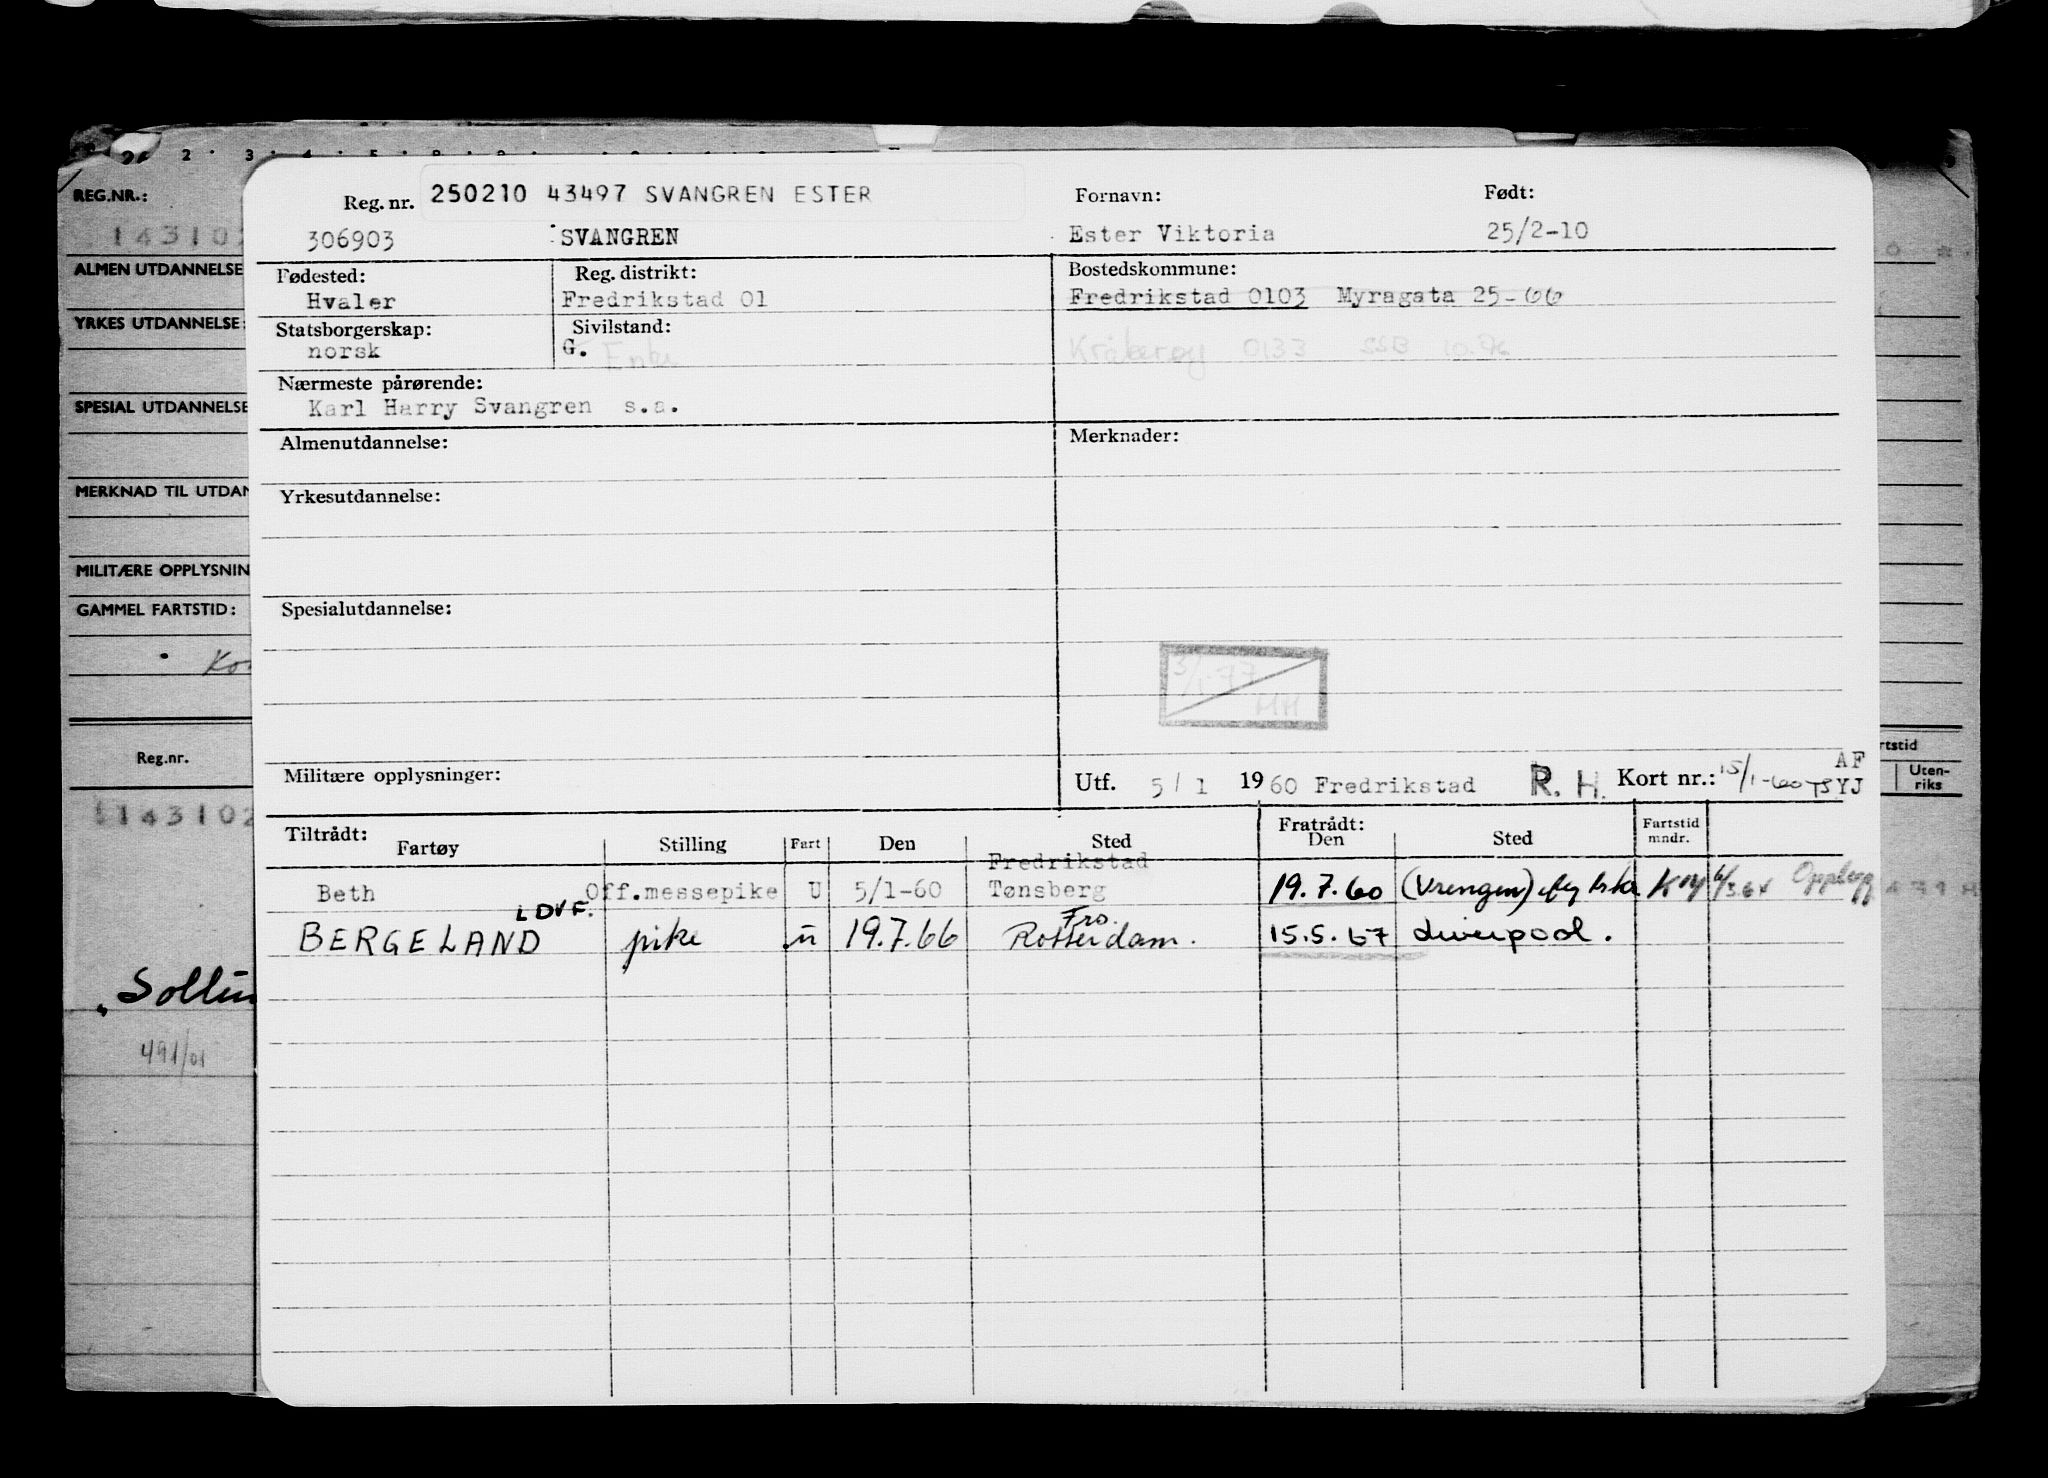 REG.NR.:
ALMEN UTDANNELSE
YRKES UTDANNELSE:
SPESIAL UTDANNELSE
MERKNAD TIL UTDAN
MILITÆRE OPPLYSNIN
GAMMEL FARTSTID:
Reg.nr.
491/01
Reg. nr. 250210 43497 SVANGREN ESTER Fornavn: Født:
306903 SVANGREN Ester Viktoria 25/2-10
Fødested: Reg. distrikt: Bostedskommune:
Hvaler Fredrikstad 01 Fredrikstad 0103 Myragata 25-66
Statsborgerskap: Sivilstand:
norsk G. Enke Kråkerøy 0133 SSB 10.76
Nærmeste pårørende:
Karl Harry Svangren s.a.
Almenutdannelse: Merknader:
Yrkesutdannelse:
Spesialutdannelse:
3/1-77
MH
Militære opplysninger: Utf. 5/1 1960 Fredrikstad R.H. Kort nr.: 15/1-60 TS AF
YJ
rtstid
Uten-
riks
Tiltrådt: Fratrådt: Fartstid
Fartøy Stilling Fart Den Sted Den Sted mndr.
Fredrikstad
Beth Off.messepike U 5/1-60 Tønsberg 19.7.60 (Vrengen)
LDVF. Fro.
BERGELAND pike u 19.7.66 Rotterdam. 15.5.67 Liverpool.